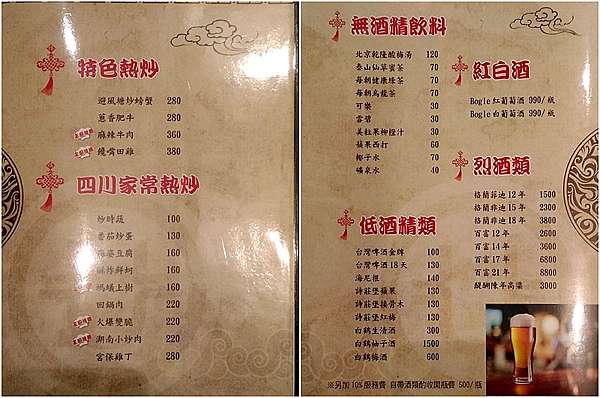 特色熱炒
避風塘炒螃蟹 280
蔥香肥牛 280
麻辣牛肉 360
饞嘴田雞 380
四川家常熱炒
炒時蔬 100
番茄炒蛋 130
麻婆豆腐 160
酥炸鮮蚵 160
螞蟻上樹 160
回鍋肉 220
火爆雙脆 220
湖南小炒肉 220
宮保雞丁 280
無酒精飲料
北京乾隆酸梅湯 120
泰山仙草蜜茶 70
每朝健康綠茶 70
每朝烏龍茶 70
可樂 30
雪碧 30
美粒果柳橙汁 30
蘋果西打 60
椰子水 70
礦泉水 40
低酒精類
台灣啤酒金牌 100
台灣啤酒18天 130
海尼根 130
詩莊堡蘋果 130
詩莊堡接骨木 130
詩莊堡紅梅 130
白鶴生清酒 300
白鶴柚子酒 1500
白鶴梅酒 600
紅白酒
Bogle紅葡萄酒 990/瓶
Bogle白葡萄酒 990/瓶
烈酒類
格蘭菲迪12年 1500
格蘭菲迪15年 2300
格蘭菲迪18年 3800
百富12年 2600
百富14年 3600
百富17年 6800
百富21年 8800
醍醐陳年高粱 3000
※另加10%服務費 自帶酒類酌收開瓶費 500/瓶